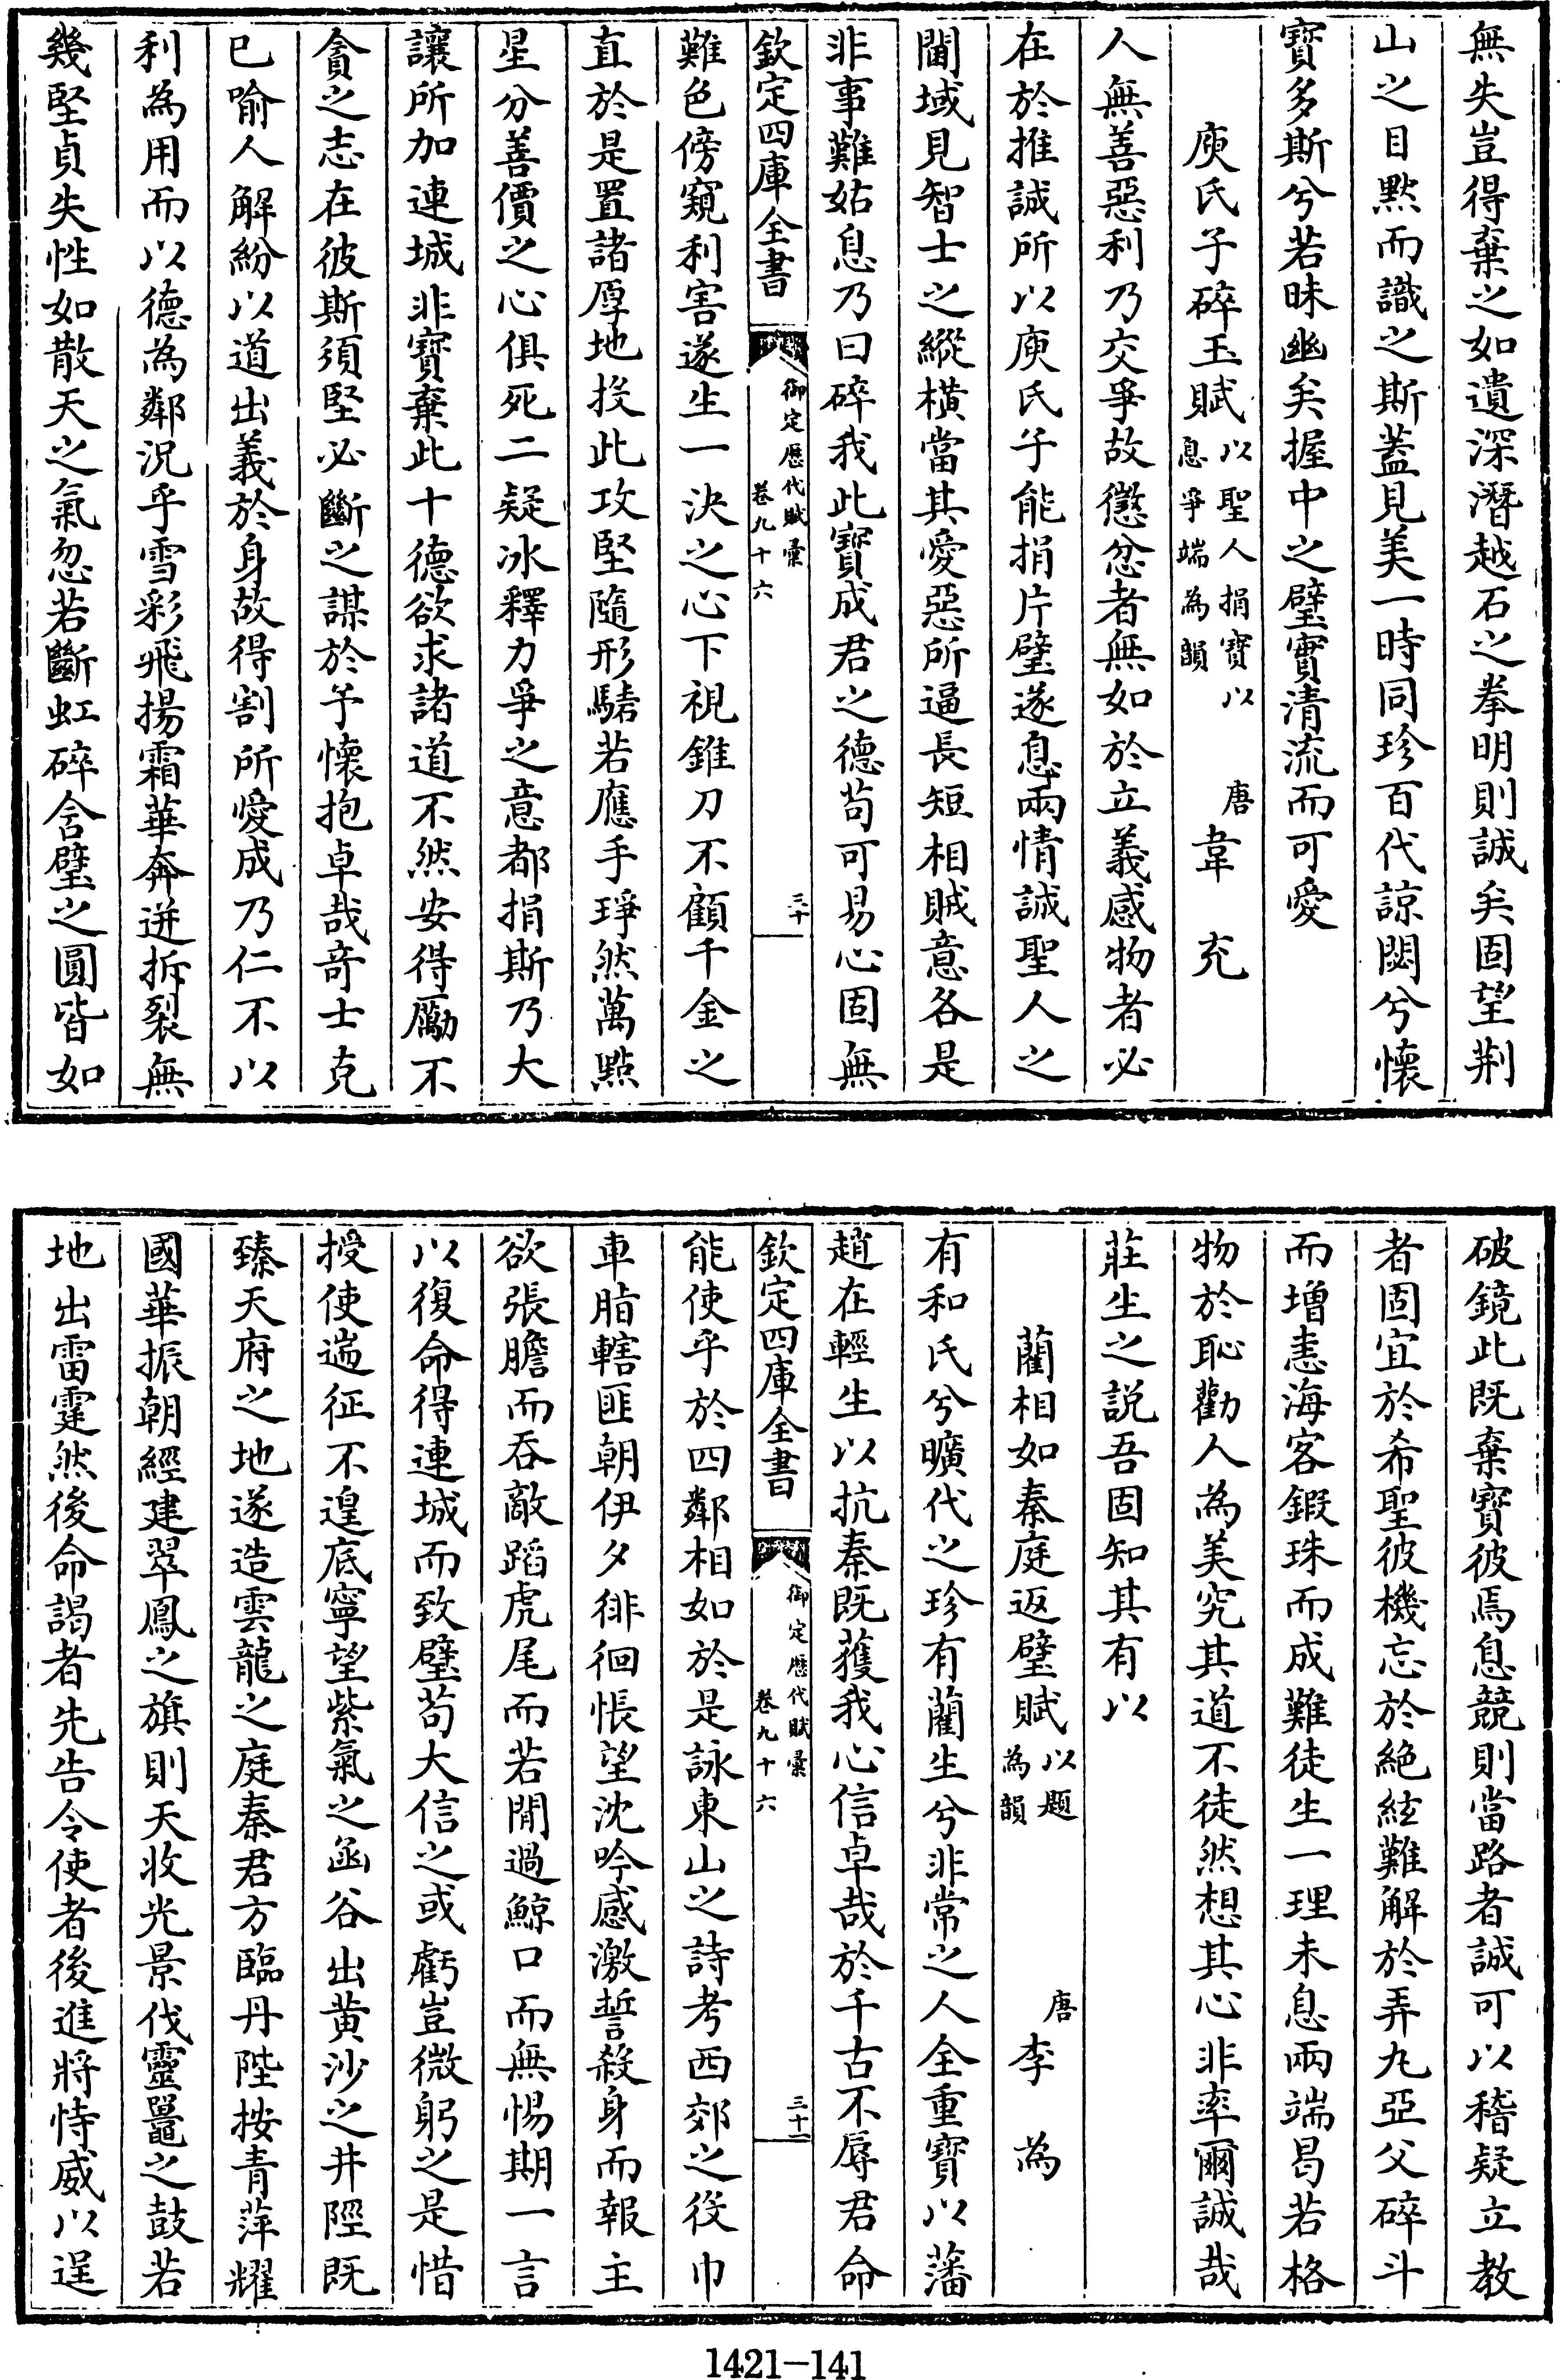 無失豈得棄之如遺深潛越石之拳明則誠矣固望荆
山之目黙而識之斯蓋見美一時同珍百代諒閟兮懷
寶多斯兮若昧幽矣握中之璧實清流而可愛
庾氏子碎玉賦以聖人捐寶以息爭端為韻 唐韋充
人無善惡利乃交爭故懲忿者無如於立義感物者必
在於推誠所以庾氏子能捐片璧遂息兩情誠聖人之
閫域見智士之縱橫當其愛惡所逼長短相賊意各是
非事難姑息乃曰碎我此寶成君之德苟可易心固無
欽定四庫全書 御定歷代賦彙 卷九十六 三十
難色傍窺利害遂生一決之心下視錐刀不顧千金之
直於是置諸厚地投此攻堅隨形驕若應手琤然萬點
星分善價之心俱死二疑冰釋力爭之意都捐斯乃大
讓所加連城非寶棄此十德欲求諸道不然安得勵不
貪之志在彼斯須堅必斷之謀於予懷抱卓哉奇士克
已喻人解紛以道出義於身故得割所愛成乃仁不以
利為用而以德為鄰況乎雪彩飛揚霜華奔迸拆裂無
幾堅貞失性如散天之氣忽若斷虹碎含璧之圓皆如
破鏡此既棄寶彼焉息競則當路者誠可以稽疑立教
者固宜於希聖彼機忘於絶絃難解於弄丸亞父碎斗
而增恚海客鍜珠而成難徒生一理未息兩端曷若格
物於恥勸人為美究其道不徒然想其心非率爾誠哉
莊生之説吾固知其有以
藺相如秦庭返璧賦以題為韻 唐李為
有和氏兮曠代之珍有藺生兮非常之人全重寶以藩
趙在輕生以抗秦既獲我心信卓哉於千古不辱君命
欽定四庫全書 御定歷代賦彙 卷九十六 三十一
能使乎於四鄰相如於是詠東山之詩考西郊之役巾
車脂轄匪朝伊夕徘徊悵望沈吟感激誓殺身而報主
欲張膽而吞敵蹈虎尾而若閒過鯨口而無惕期一言
以復命得連城而致璧苟大信之或虧豈微躬之是惜
授使遄征不遑底寧望紫氣之函谷出黄沙之井陘既
臻天府之地遂造雲龍之庭秦君方臨丹陛按青萍耀
國華振朝經建翠鳳之旗則天收光景伐靈鼉之鼓若
地出雷霆然後命謁者先告令使者後進將恃威以逞
1421-141